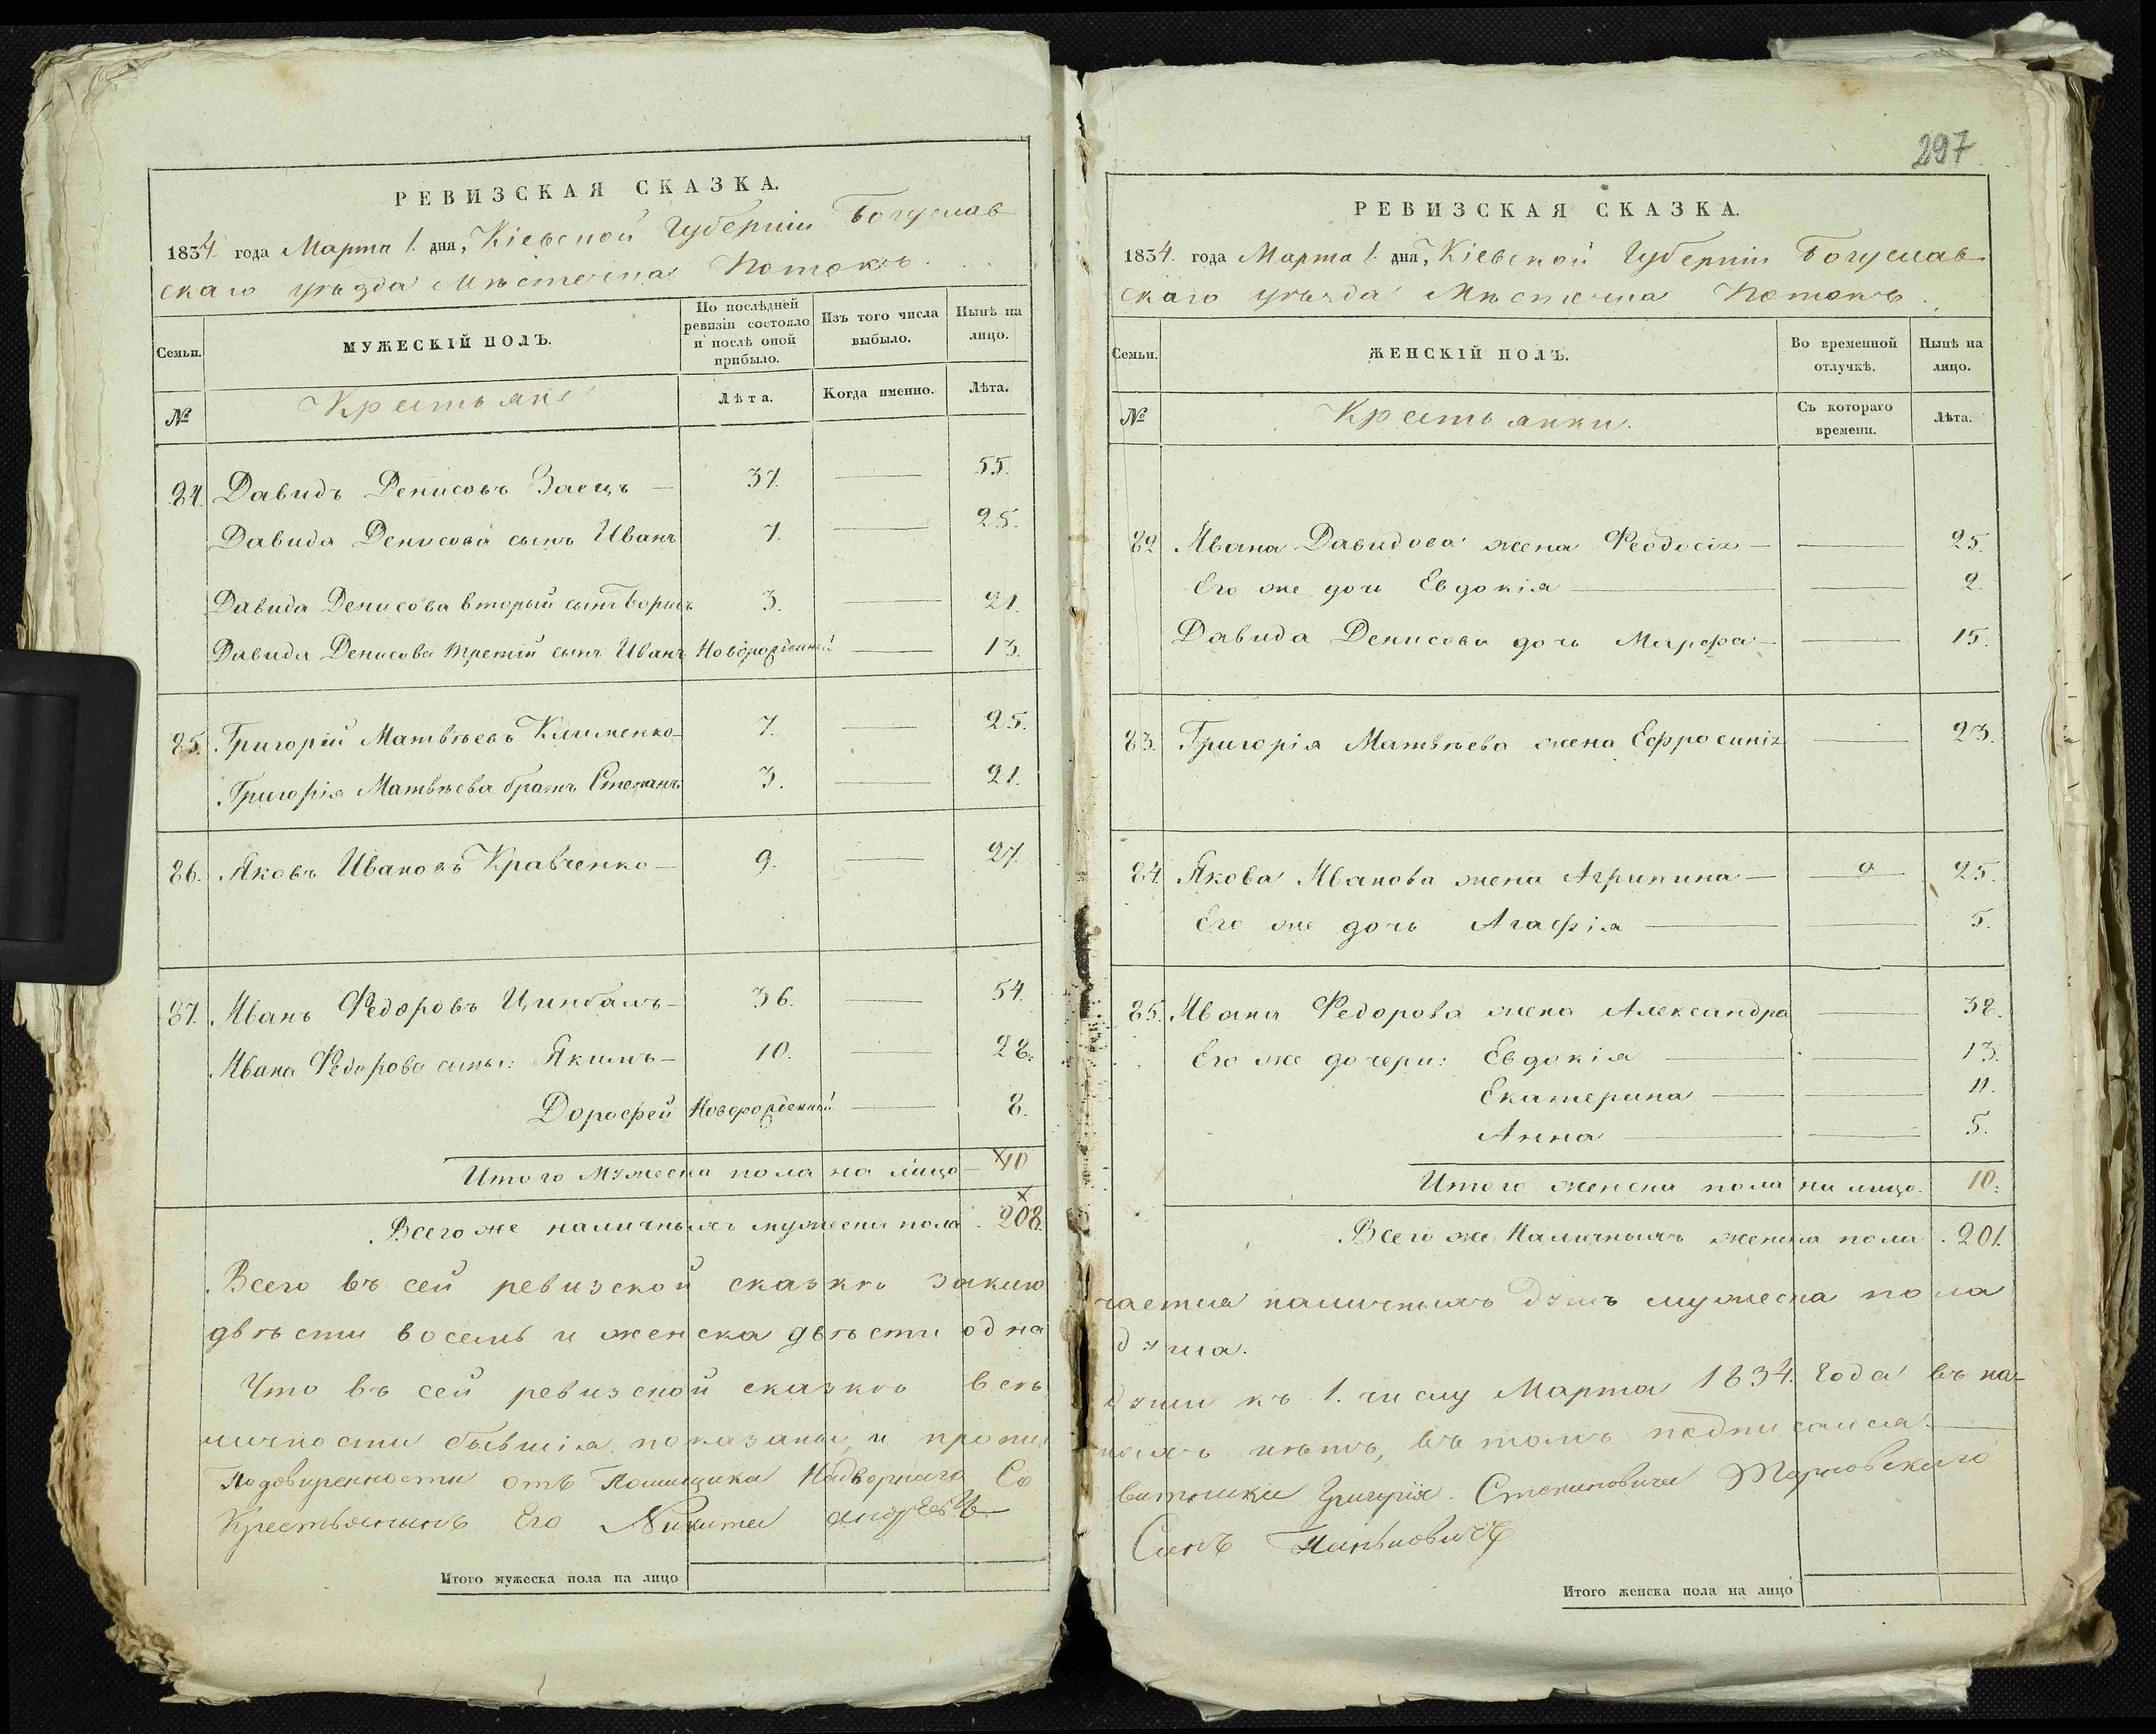 РЕВИЗСКАЯ СКАЗКА.
1834 года Марта 1. дня, Кіевской Губерніи Богуслав
скаго уѣзда Мѣстечка Потокъ.
Семьи.
МУЖЕСКІЙ ПОЛЪ.
По послѣдней ревизіи состояло и послѣ оной прибыло.
Изъ того числа выбыло.
Нынѣ на лицо.
№
Крестьяне
Лѣта.
Когда именно.
Лѣта.
84. Давидъ Денисовъ Заецъ — 37. — 55.
Давида Денисова сынъ Иванъ 7. — 25.
Давида Денисова вторый сынъ Борисъ 3. — 21.
Давида Денисова третій сынъ Иванъ Новорожденный — 13.
85. Григорій Матвѣевъ Клименко — 7. — 25.
Григорія Матвѣева братъ Степанъ 3. — 21.
86. Яковъ Ивановъ Кравченко — 9. — 27.
87. Иванъ Федоровъ Цинбалъ — 36. — 54.
Ивана Федорова сыны: Якимъ — 10. — 28.
Дорофей Новорожденный — 8.
Итого Мужеска пола на лицо — 10
Всего же наличныхъ мужеска пола . 208.
Всего въ сей ревизской сказкѣ заклю
двѣсти восемь и женска двѣсти одна
Что въ сей ревизской сказкѣ всѣ
личности бывшія показаны, и пропи
По довѣренности отъ Помищика Надворнаго Со
Крестьянинъ Его Никита
Итого мужеска пола на лицо
297
РЕВИЗСКАЯ СКАЗКА.
1834 года Марта 1. дня, Кіевской Губерніи Богуслав
скаго уѣзда Мѣстечка Потокъ.
Семьи.
ЖЕНСКІЙ ПОЛЪ.
Во временной отлучкѣ.
Нынѣ на лицо.
№
Крестьянки.
Съ котораго времени.
Лѣта.
82 Ивана Давидова жена Феодосія — — 25.
Его же дочь Евдокія — — 2.
Давида Денисова дочь Марфа — — 15.
83. Григорія Матвѣева жена Ефросинія — 23.
84. Якова Иванова жена Агрипина — — 25.
Его же дочь Агафія — — 5.
85. Ивана Федорова жена Александра — 38.
Его же дочери: Евдокія — — 13.
Екатерина — — 11.
Анна — — 5.
Итого женска пола на лицо. 10.
Всего же Наличныхъ женска пола . 201.
чается наличныхъ душъ мужеска пола
душа.
души къ 1. числу Марта 1834. Года въ на-
ныхъ нѣтъ, въ томъ подписался.
вѣтника Григорія Степановича Тарновскаго
Синъ
Итого женска пола на лицо